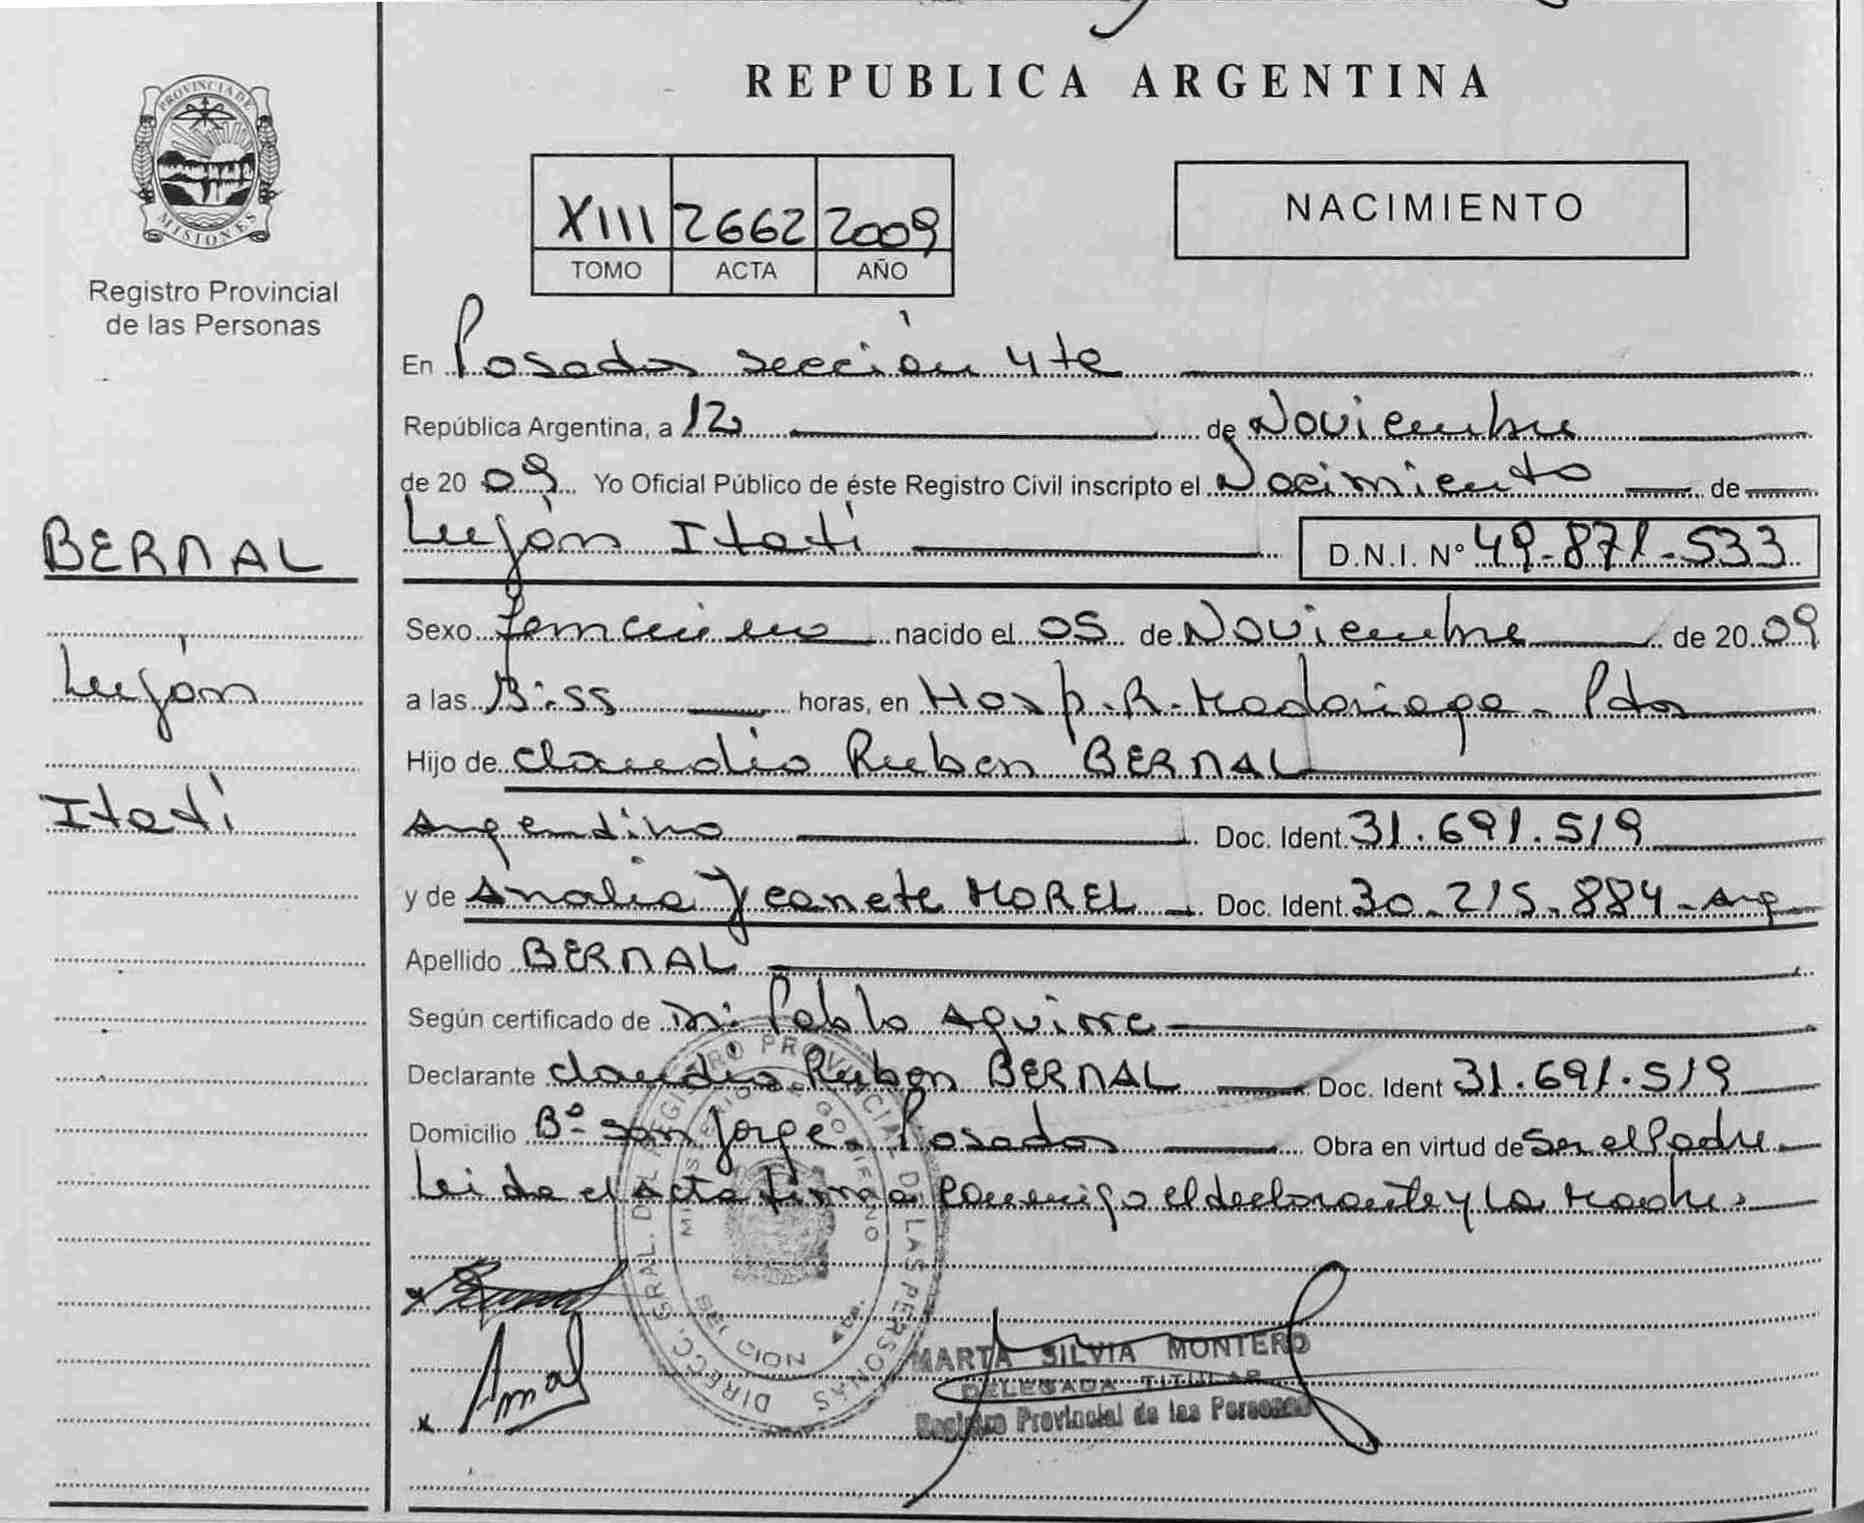 PROVINCIA DE
MISIONES
Registro Provincial
de las Personas
BERNAL
Luján
Itatí
REPUBLICA ARGENTINA
XIII 2662 2009
TOMO ACTA AÑO
NACIMIENTO
En Posadas sección 4ta
República Argentina, a 12 de Noviembre
de 2009 Yo Oficial Público de éste Registro Civil inscripto el Nacimiento de
Luján Itatí D.N.I. Nº 49-871-533
Sexo femenino nacido el 05 de Noviembre de 2009
a las horas, en Hosp. R. Madariaga - Pdas
Hijo de Claudio Ruben BERNAL
Argentino Doc. Ident. 31.691.519
y de Analia Jeanete MOREL Doc. Ident. 30-215-884-Arg
Apellido BERNAL
Según certificado de Dr. Pablo Aguirre
Declarante Claudio Ruben BERNAL Doc. Ident 31.691.519
Domicilio Bº San Jorge - Posadas Obra en virtud de Ser el Padre
Leida el Acta firma conmigo el declarante y la Madre
DIRECC. GRAL. DEL REGISTRO PROVINCIAL DE LAS PERSONAS
MINISTERIO DE GOBIERNO
SECCION 4ta.
MARTA SILVIA MONTERO
DELEGADA TITULAR
Registro Provincial de las Personas